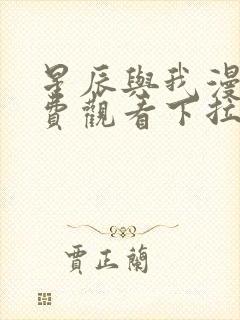 星辰與我漫
費觀看下拉
賈正蘭